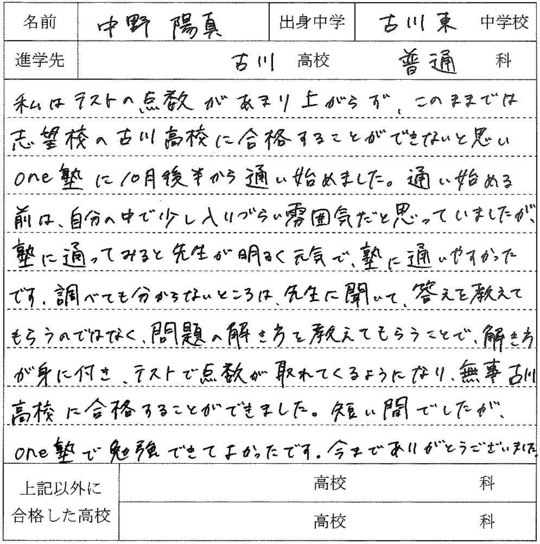 名前 中野 陽真 出身中学 古川東 中学校
進学先 古川 高校 普通 科
私はテストの点数があまり上がらず、このままでは
志望校の古川高校に合格することができないと思い
one塾に10月後半から通い始めました。通い始める
前は、自分の中で少し入りづらい雰囲気だと思っていましたが、
塾に通ってみると先生が明るく元気で、塾に通いやすかった
です。調べても分からないところは、先生に聞いて、答えを教えて
もらうのではなく、問題の解き方を教えてもらうことで、解き方
が身に付き、テストで点数が取れてくるようになり、無事古川
高校に合格することができました。短い間でしたが、
one塾で勉強できてよかったです。今までありがとうございました。
上記以外に
合格した高校
高校 科
高校 科